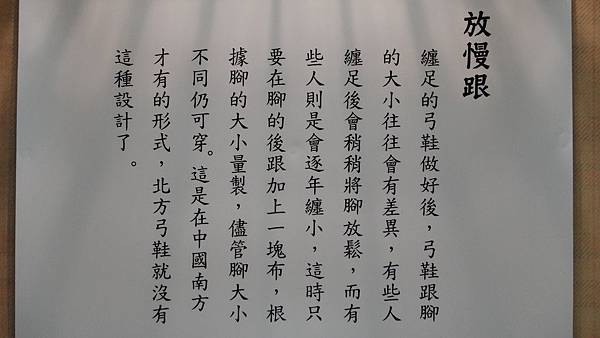 放慢跟
纏足的弓鞋做好後，弓鞋跟腳
的大小往往會有差異，有些人
纏足後會稍稍將腳放鬆，而有
些人則是會逐年纏小，這時只
要在腳的後跟加上一塊布，根
據腳的大小量製，儘管腳大小
不同仍可穿。這是在中國南方
才有的形式，北方弓鞋就沒有
這種設計了。